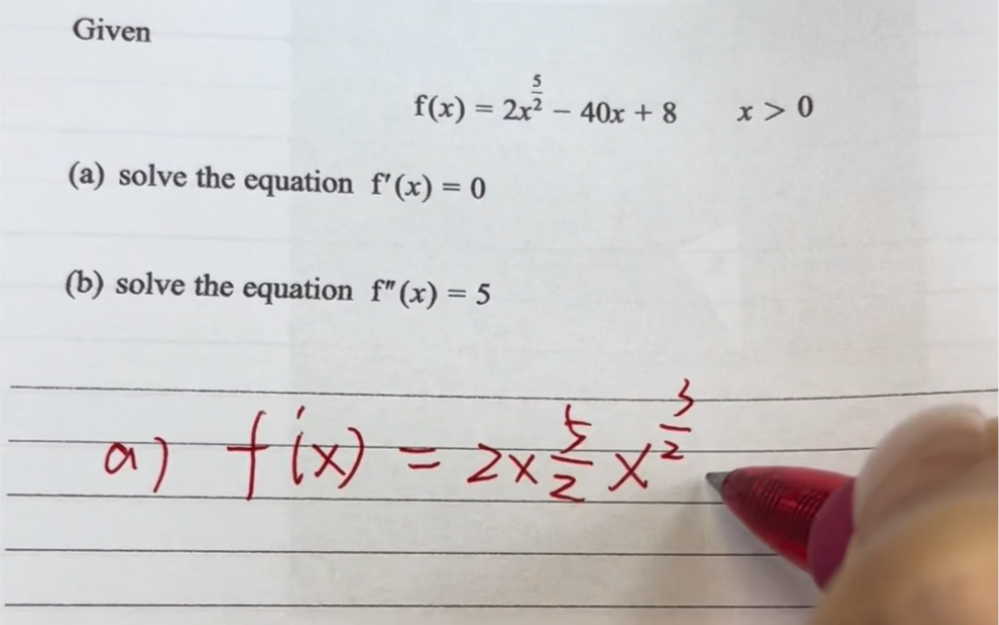 Given
f(x) = 2x^{\frac{5}{2}} − 40x + 8 x > 0
(a) solve the equation f′(x) = 0
(b) solve the equation f″(x) = 5
a) f′(x) = 2×\frac{5}{2} x^{\frac{3}{2}}